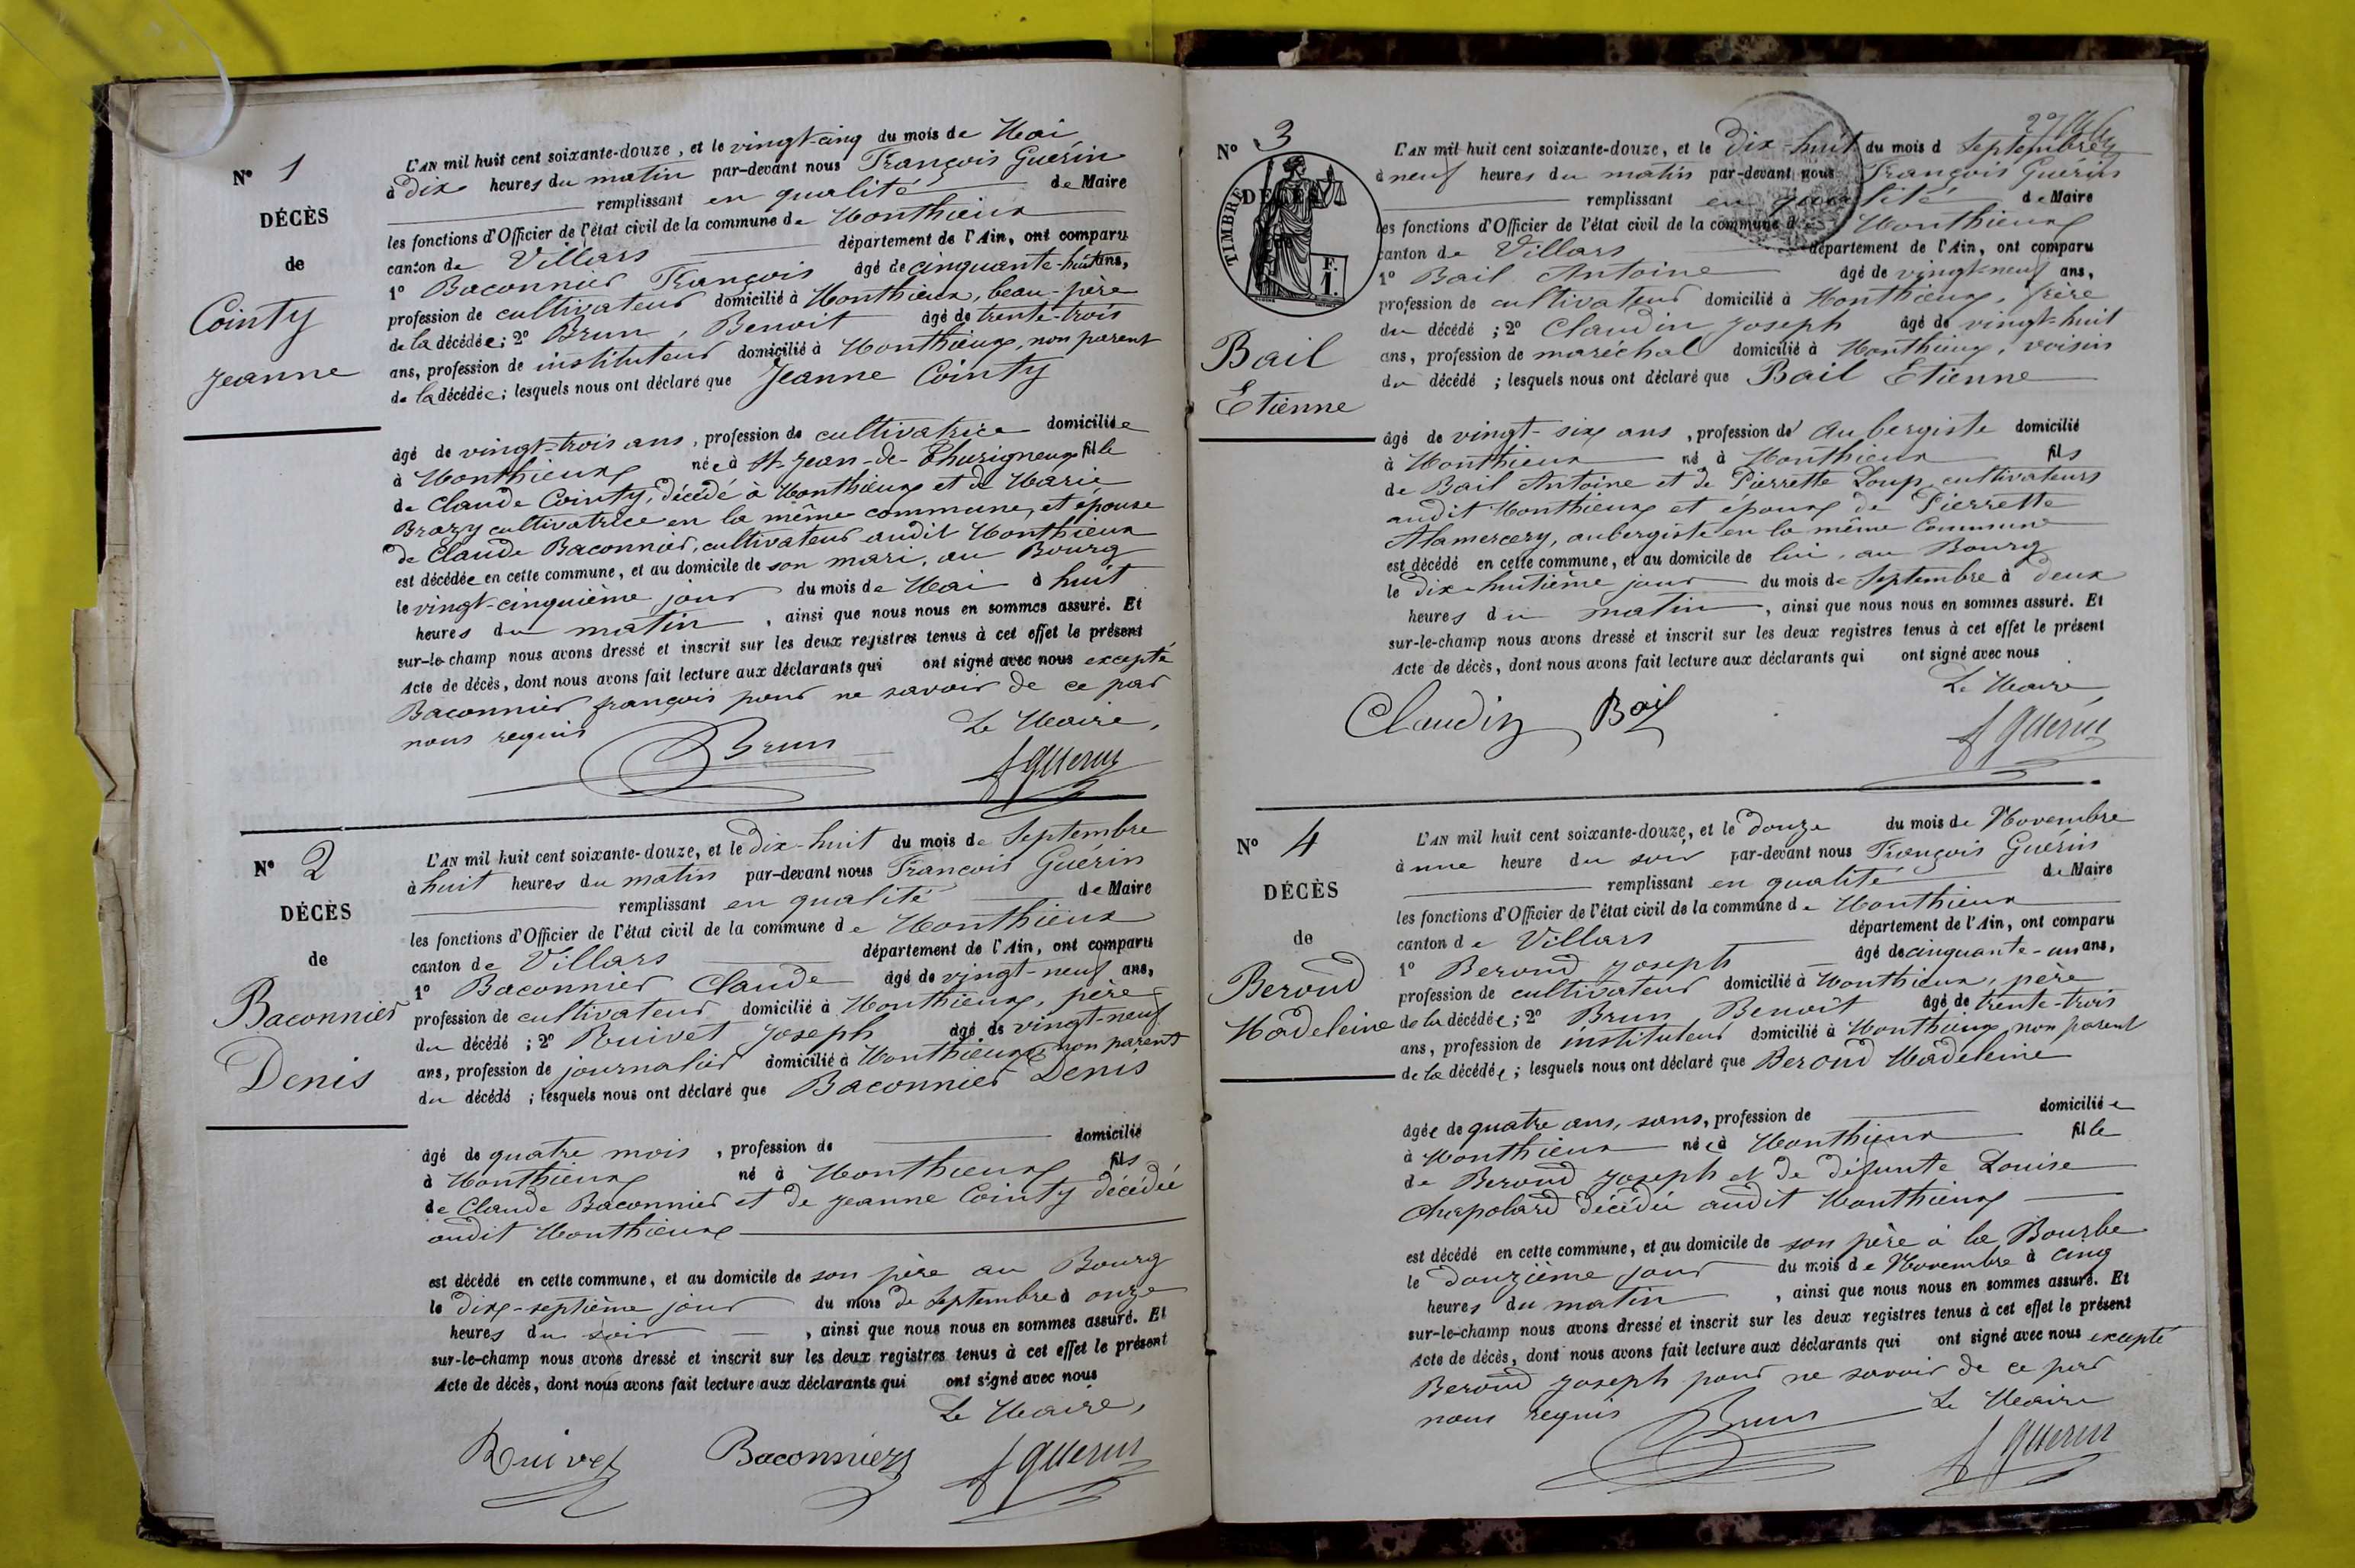 N° 1
DÉCÈS
de
Cointy
Jeanne
L'AN mil huit cent soixante-douze, et le vingt-cinq du mois de Mai
à dix heures du matin par-devant nous François Guérin
remplissant en qualité de Maire
les fonctions d'Officier de l'état civil de la commune de Monthieux
canton de Villars département de l'Ain, ont comparu
1° Baconnier François âgé de cinquante-huit ans,
profession de cultivateur domicilié à Monthieux, beau-père
de la décédée; 2° Brun, Benoit âgé de trente-trois
ans, profession de instituteur domicilié à Monthieux, non parent
de la décédée; lesquels nous ont déclaré que Jeanne Cointy
âgé de vingt-trois ans, profession de cultivatrice domiciliée
à Monthieux née à St-Jean-de-Thurigneux fille
de Claude Cointy, décédé à Monthieux et de Marie
Brazy cultivatrice en la même commune, et épouse
de Claude Baconnier, cultivateur audit Monthieux
est décédée en cette commune, et au domicile de son mari, au Bourg
le vingt-cinquième jour du mois de Mai à huit
heures du matin, ainsi que nous nous en sommes assuré. Et
sur-le-champ nous avons dressé et inscrit sur les deux registres tenus à cet effet le présent
Acte de décès, dont nous avons fait lecture aux déclarants qui ont signé avec nous excepté
Baconnier françois pour ne savoir de ce par
nous requis Le Maire,
Brun f Guérin
N° 2
DÉCÈS
de
Baconnier
Denis
L'AN mil huit cent soixante-douze, et le Dix-huit du mois de Septembre
à huit heures du matin par-devant nous François Guérin
remplissant en qualité de Maire
les fonctions d'Officier de l'état civil de la commune de Monthieux
canton de Villars département de l'Ain, ont comparu
1° Baconnier Claude âgé de vingt-neuf ans,
profession de cultivateur domicilié à Monthieux, père
du décédé; 2° Ruivet Joseph âgé de vingt-neuf
ans, profession de journalier domicilié à Monthieux, non parent
du décédé; lesquels nous ont déclaré que Baconnier Denis
âgé de quatre mois, profession de domicilié
à Monthieux né à Monthieux fils
de Claude Baconnier et de Jeanne Cointy décédée
audit Monthieux
est décédé en cette commune, et au domicile de son père au Bourg
le dix-septième jour du mois de Septembre à onze
heures du soir, ainsi que nous nous en sommes assuré. Et
sur-le-champ nous avons dressé et inscrit sur les deux registres tenus à cet effet le présent
Acte de décès, dont nous avons fait lecture aux déclarants qui ont signé avec nous
Le Maire,
Ruivet Baconnier f Guérin
N° 3
DÉCÈS
TIMBRE
F.
1.
Bail
Etienne
L'AN mil huit cent soixante-douze, et le Dix-huit du mois d Septembre
à neuf heures du matin par-devant nous François Guérin
remplissant en qualité de Maire
les fonctions d'Officier de l'état civil de la commune de Monthieux
canton de Villars département de l'Ain, ont comparu
1° Bail Antoine âgé de vingt-neuf ans,
profession de cultivateur domicilié à Monthieux, frère
du décédé; 2° Claudin Joseph âgé de vingt-huit
ans, profession de maréchal domicilié à Monthieux, voisin
du décédé; lesquels nous ont déclaré que Bail Etienne
âgé de vingt-six ans, profession de Aubergiste domicilié
à Monthieux né à Monthieux fils
de Bail Antoine et de Pierrette Loup, cultivateurs
audit Monthieux et époux de Pierrette
Alamercery, aubergiste en la même Commune
est décédé en cette commune, et au domicile de lui, au Bourg
le dix-huitième jour du mois de Septembre à deux
heures du matin, ainsi que nous nous en sommes assuré. Et
sur-le-champ nous avons dressé et inscrit sur les deux registres tenus à cet effet le présent
Acte de décès, dont nous avons fait lecture aux déclarants qui ont signé avec nous
Le Maire
Claudin Bail f Guérin
N° 4
DÉCÈS
de
Beroud
Madeleine
L'AN mil huit cent soixante-douze, et le douze du mois de Novembre
à une heure du soir par-devant nous François Guérin
remplissant en qualité de Maire
les fonctions d'Officier de l'état civil de la commune de Monthieux
canton de Villars département de l'Ain, ont comparu
1° Beroud Joseph âgé de cinquante-un ans,
profession de cultivateur domicilié à Monthieux, père
de la décédée; 2° Brun Benoit âgé de trente-trois
ans, profession de instituteur domicilié à Monthieux, non parent
de la décédée; lesquels nous ont déclaré que Beroud Madeleine
âgée de quatre ans, sans, profession de domiciliée
à Monthieux née à Monthieux fille
de Beroud Joseph et de défunte Louise
Chapolard décédée audit Monthieux
est décédé en cette commune, et au domicile de son père à la Bourbe
le douzième jour du mois de Novembre à cinq
heures du matin, ainsi que nous nous en sommes assuré. Et
sur-le-champ nous avons dressé et inscrit sur les deux registres tenus à cet effet le présent
Acte de décès, dont nous avons fait lecture aux déclarants qui ont signé avec nous excepté
Beroud Joseph pour ne savoir de ce par
nous requis Le Maire
Brun f Guérin